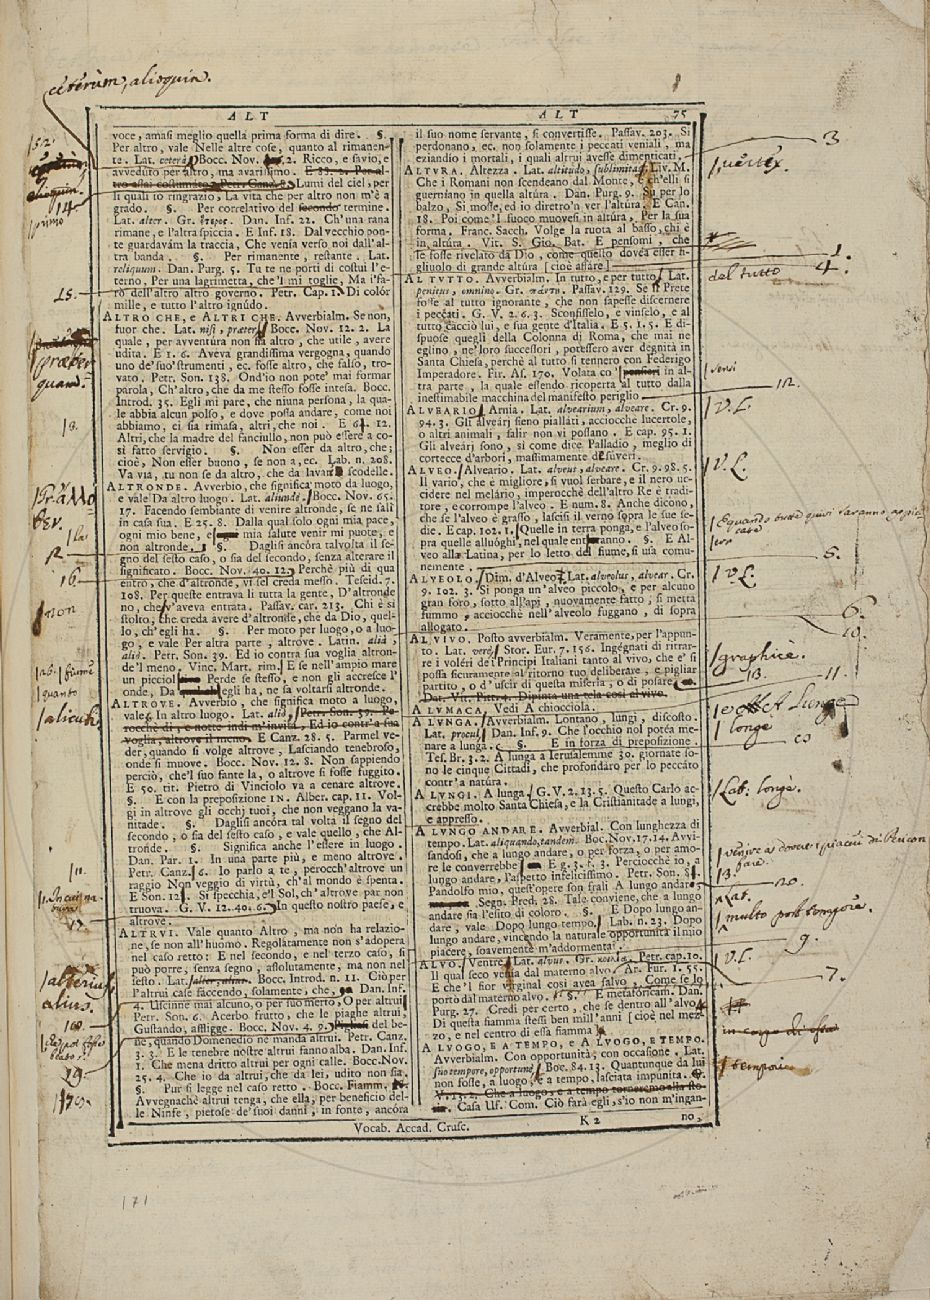 ceterùm, alioquin.
ALT
ALT
75
voce, amasi meglio quella prima forma di dire. §.
Per altro, vale Nelle altre cose, quanto al rimanen-
te. Lat. Bocc. Nov. 2. Ricco, e savio, e
avveduto per altro, ma avarissimo.
Lumi del ciel, per
li quali io ringrazio, La vita che per altro non m'è a
grado. §. Per correlativo del secondo termine.
Lat. alter. Gr. ἕτερος. Dan. Inf. 22. Ch'una rana
rimane, e l'altra spiccia. E Inf. 18. Dal vecchio pon-
te guardavám la traccia, Che venía verso noi dall'al-
tra banda. §. Per rimanente, restante. Lat.
reliquum. Dan. Purg. 5. Tu te ne porti di costui l'e-
terno, Per una lagrimetta, che'l mi toglie, Ma i'fa-
rò dell'altro altro governo. Petr. Cap. 1. Di colór
mille, e tutto l'altro ignúdo.
ALTRO CHE, e ALTRI CHE. Avverbialm. Se non,
fuor che. Lat. nisi, præter. Bocc. Nov. 12. 2. La
quale, per avventúra non sia altro, che utile, avere
udita. E 1. 6. Aveva grandissima vergogna, quando
uno de' suo' strumenti, ec. fosse altro, che falso, tro-
vato. Petr. Son. 138. Ond'io non pote' mai formar
parola, Ch'altro, che da me stesso fosse intesa. Bocc.
Introd. 35. Egli mi pare, che niuna persona, la qua-
le abbia alcun polso, e dove possa andare, come noi
abbiamo, ci sia rimasa, altri, che noi. E 64. 12.
Altri, che la madre del fanciullo, non può essere a co-
sì fatto servigio. §. Non esser da altro, che;
cioè, Non esser buono, se non a, ec. Lab. n. 208.
Va via, tu non se da altro, che da lavar scodelle.
ALTRONDE. Avverbio, che significa moto da luogo,
e vale Da altro luogo. Lat. aliunde. Bocc. Nov. 65.
17. Facendo sembiante di venire altronde, se ne salì
in casa sua. E 25. 8. Dalla qual solo ogni mia pace,
ogni mio bene, e mia salute venir mi puote, e
non altronde. §. Daglisi áncora talvolta il se-
gno del sesto caso, o sia del secondo, senza alterare il
significato. Bocc. Nov. 40. 12. Perchè più di qua
entro, che d'altronde, vi sel creda messo. Teseid. 7.
108. Per queste entrava lì tutta la gente, D'altronde
no, che v'aveva entrata. Passav. car. 213. Chi è sì
stolto, che creda avere d'altronde, che da Dio, quel-
lo, ch'egli ha. §. Per moto per luogo, o a luo-
go, e vale Per altra parte, altrove. Latin. aliò,
aliò. Petr. Son. 39. Ed io contra sua voglia altron-
de'l meno. Vinc. Mart. rim. E se nell'ampio mare
un picciol Perde se stesso, e non gli accresce l'
onde, Da egli ha, ne sa voltarsi altronde.
ALTROVE. Avverbio, che significa moto a luogo,
vale In altro luogo. Lat. aliò. Petr. Son. 37. Pe-
rocchè dì, e notte indi m'invita, Ed io contr'a sua
voglia, altrove il meno. E Canz. 28. 5. Parmel ve-
der, quando si volge altrove, Lasciando tenebroso,
onde si muove. Bocc. Nov. 12. 8. Non sappiendo
perciò, che'l suo fante là, o altrove si fosse fuggito.
E 50. tit. Pietro di Vinciolo va a cenare altrove.
§. E con la preposizione IN. Alber. cap. 11. Vol-
gi in altrove gli occhj tuoi, che non veggano la va-
nitade. §. Daglisi áncora tal volta il segno del
secondo, o sia del sesto caso, e vale quello, che Al-
tronde. §. Significa anche l'essere in luogo.
Dan. Par. 1. In una parte più, e meno altrove.
Petr. Canz. 6. Io parlo a te, perocch'altrove un
raggio Non veggio di virtù, ch'al mondo è spenta.
E Son. 12. Si specchia, e'l Sol, ch'altrove par non
truova. G. V. 12. 40. 6. In questo nostro paese, e
altrove.
ALTRUI. Vale quanto Altro, ma non ha relazio-
ne, se non all'huomo. Regolatamente non s'adopera
nel caso retto: E nel secondo, e nel terzo caso, si
può porre, senza segno, assolutamente, ma non nel
sesto. Lat. Bocc. Introd. n. 11. Ciò per
l'altrui case faccendo, solamente, che,
4. Uscinne mai alcuno, o per suo merto, O per altrui
Petr. Son. 6. Acerbo frutto, che le piaghe altrui,
Gustando, affligge. Bocc. Nov. 4. 9. Piglisi del be-
ne, quando Domenedio ne manda altrui. Petr. Canz.
3. 3. E le tenebre nostre altrui fanno alba. Dan. Inf.
1. Che mena dritto altrui per ogni calle. Bocc. Nov.
25. 4. Che io da altrui, che da lei, udito non sia.
§. Pur si legge nel caso retto. Bocc. Fiamm.
Avvegnachè altrui tenga, che ella, per beneficio del-
le Ninfe, pietose de' suoi danni, in fonte, ancóra
il suo nome servante, si convertisse. Passav. 203. Si
perdonano, ec. non solamente i peccati veniali, ma
eziandio i mortali, i quali altrui avesse dimenticati.
ALTURA. Altezza. Lat. altitudo, sublimitas. Liv. M.
Che i Romani non scendeano dal Monte, ch'elli si
guernisano in quella altúra. Dan. Purg. 9. Su per lo
balzo, Si mosse, ed io diretr'o 'n ver l'altúra. E Can.
18. Poi come'l fuoco muovesi in altúra, Per la sua
forma. Franc. Sacch. Volge la ruota al basso, chi è
in altúra. Vit. S. Gio. Bat. E pensomi, che
se fosse rivelato da Dio, come quello dovea esser fi-
gliuolo di grande altúra [cioè affare]
AL TUTTO. Avverbialm. In tutto, e per tutto. Lat.
penitus, omnino. Gr. πάντῃ. Passav. 129. Se il Prete
fosse al tutto ignorante, che non sapesse discernere
i peccati. G. V. 2. 6. 3. Sconfisselo, e vinselo, e al
tutto cacciò lui, e sua gente d'Italia. E 5. 1. 5. E di-
spuose quegli della Colonna di Roma, che mai ne
eglino, ne' loro successori, potessero aver degnità in
Santa Chiesa, perchè al tutto si tennero con Federigo
Imperadore. Fir. As. 170. Volata co' pensieri in al-
tra parte, la quale essendo ricoperta al tutto dalla
inestimabile macchina del manifesto periglio
ALVEARIO. Arnia. Lat. alvearium, alveare. Cr. 9.
94. 3. Gli alveárj sieno piallati, acciocchè lucertole,
o altri animali, salir non vi possano. E cap. 95. 1.
Gli alveárj son, sì come dice Palladio, meglio di
cortecce d'arbori, massimamente di súveri.
ALVEO. Alveario. Lat. alveus, alveare. Cr. 9. 98. 5.
Il vario, che è migliore, si vuol serbare, e il nero uc-
cidere nel melário, imperocchè dell'altro Re è tradi-
tore, e corrompe l'alveo. E num. 8. Anche dicono,
che se l'alveo è grasso, lascisi il verno sopra le sue se-
die. E cap. 102. 1. Quelle in terra ponga, e l'alveo so-
pra quelle alluóghi, nel quale entreranno. §. E Al-
veo alla Latina, per lo letto del fiume, si usa comu-
nemente.
ALVEOLO. Dim. d'Alveo. Lat. alveolus, alvear. Cr.
9. 102. 3. Si ponga un'alveo piccolo, e per alcuno
gran foro, sotto all'api, nuovamente fatto, si metta
fummo, acciocchè nell'alveolo fuggano, di sopra
allogato.
AL VIVO. Posto avverbialm. Veramente, per l'appun-
to. Lat. verè. Stor. Eur. 7. 156. Ingégnati di ritrar-
re i voléri de' Principi Italiani tanto al vivo, che e' si
possa sicuramente al ritorno tuo deliberare, e pigliar
partito, o d'uscir di questa miseria, o di posare
Dav. Vit. Pitt. 4. Dipinta una tela così al vivo.
A LUMACA, Vedi A chiocciola.
A LUNGA. Avverbialm. Lontano, lungi, discosto.
Lat. procul. Dan. Inf. 9. Che l'occhio nol potéa me-
nare a lunga. §. E in forza di preposizione.
Tes. Br. 3. 2. A lunga a Ierusalemme 30. giornate so-
no le cinque Cittadi, che profondáro per lo peccáto
contr'a natura.
A LUNGI. A lunga. G. V. 2. 13. 5. Questo Carlo ac-
crebbe molto Santa Chiesa, e la Cristianitade a lungi,
e appresso.
A LUNGO ANDARE. Avverbial. Con lunghezza di
tempo. Lat. aliquando, tandem. Boc. Nov. 17. 14. Avvi-
sandosi, che a lungo andare, o per forza, o per amo-
re le converrebbe E g. 3. f. 3. Perciocchè io, a
lungo andare, l'aspetto infelicissimo. Petr. Son.
Pandolfo mio, quest'opere son frali A lungo andar
Segn. Pred. 28. Tale conviene, che a lungo
andare sia l'esito di coloro. §. E Dopo lungo an-
dare, vale Dopo lungo tempo. Lab. n. 23. Dopo
lungo andare, vincendo la naturale opportunità il mio
piacére, soavemente m'addormentai.
ALVO. Ventre. Lat. alvus. Gr. κοιλία. Petr. cap. 10.
Il qual seco venía dal materno alvo. Ar. Fur. 1. 55.
E che'l fior virginal così avea salvo, Come se lo
portò dal materno alvo. §. E metaforicam. Dan.
Purg. 27. Credi per certo, che se dentro all'alvo
Di questa fiamma stessi ben mill'anni [cioè nel mez-
zo, e nel centro di essa fiamma]
A LUOGO, E A TEMPO, e A LUOGO, E TEMPO.
Avverbialm. Con opportunità, con occasione. Lat.
suo tempore, opportunè. Boc. 84. 13. Quantunque da lui
non fosse, a luogo, e a tempo, lasciata impunita. E
V. 13. 2. Che a luogo, e a tempo torneremo alla sto-
ria. Casa Uf. Com. Ciò farà egli, s'io non m'ingan-
Vocab. Accad. Crusc.
K 2
no,
14
primo
15.
præter
quam
18.
16
non
quanto
17.
19.
3
vertex.
1.
del tutto 4.
12.
V. L.
V. L.
8.
V. L.
6.
10.
graphicè.
13.
11.
longè
Lat. longè.
20.
Lat.
multo post tempore.
9.
V. L.
7.
171